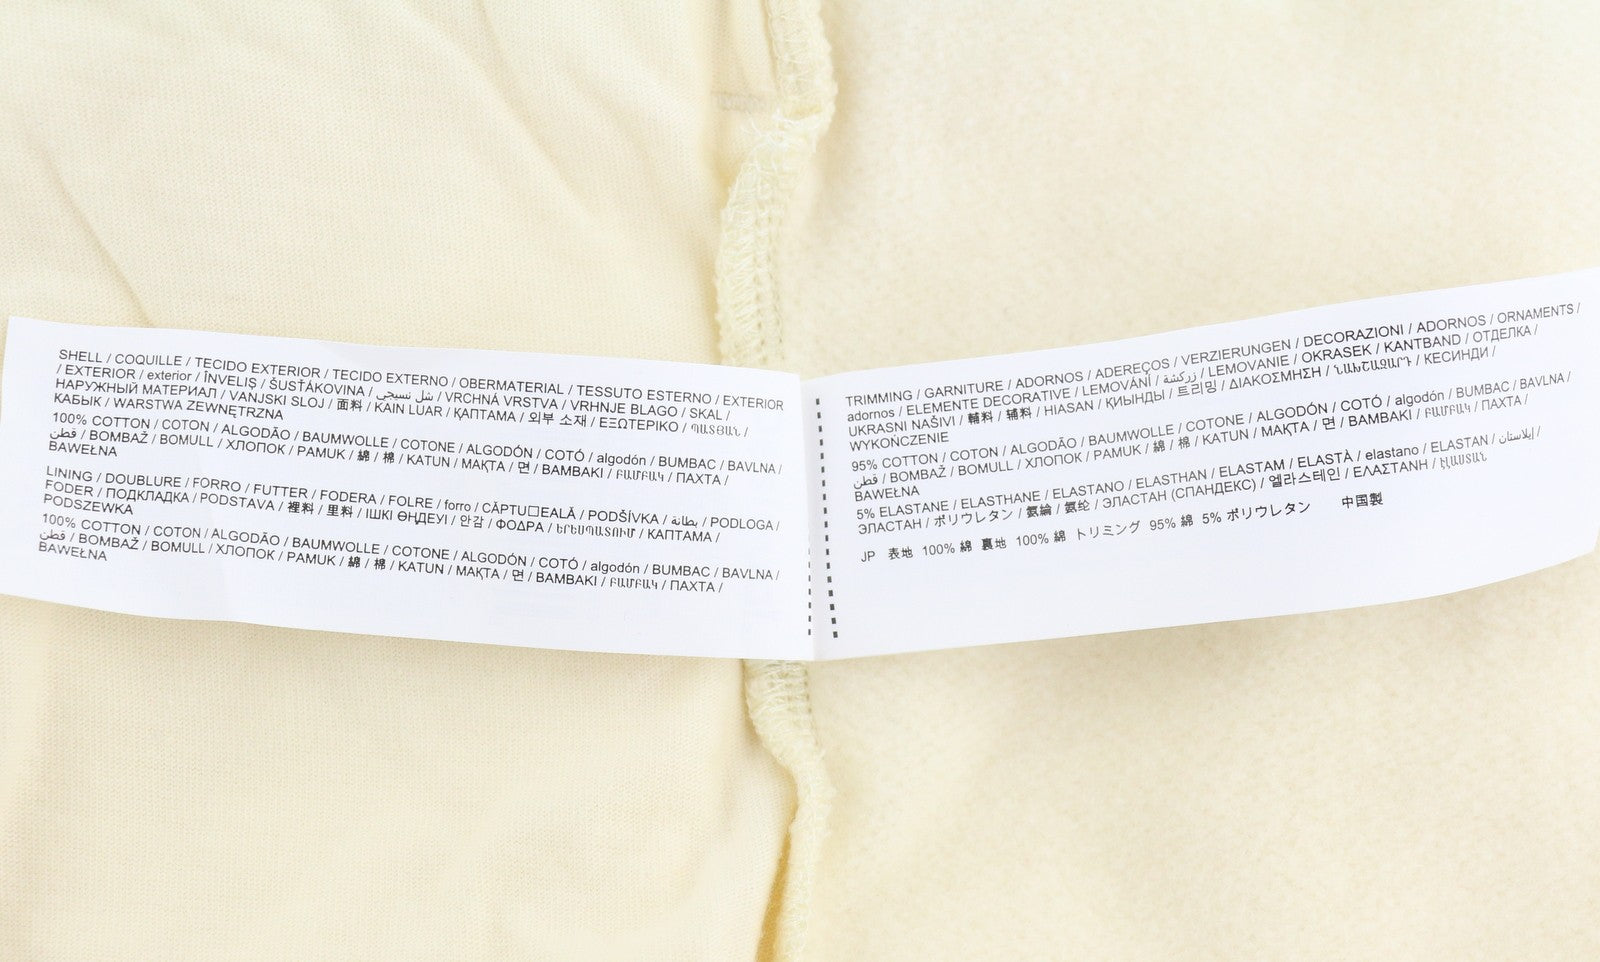 SHELL / COQUILLE / TECIDO EXTERIOR / TECIDO EXTERNO / OBERMATERIAL / TESSUTO ESTERNO / EXTERIOR
/ EXTERIOR / exterior / ÎNVELIŞ / ŠUSŤÁKOVINA / شل نسيجي / VRCHNÁ VRSTVA / VRHNJE BLAGO / SKAL /
НАРУЖНЫЙ МАТЕРИАЛ / VANJSKI SLOJ / 面料 / KAIN LUAR / ҚАПТАМА / 외부 소재 / ΕΞΩΤΕΡΙΚΟ / ՊԱՏՅԱՆ /
КАБЫК / WARSTWA ZEWNĘTRZNA
100% COTTON / COTON / ALGODÃO / BAUMWOLLE / COTONE / ALGODÓN / COTÓ / algodón / BUMBAC / BAVLNA /
قطن / BOMBAŽ / BOMULL / ХЛОПОК / PAMUK / 綿 / 棉 / KATUN / МАҚТА / 면 / BAMBAKI / ԲԱՄԲԱԿ / ПАХТА /
BAWEŁNA
LINING / DOUBLURE / FORRO / FUTTER / FODERA / FOLRE / forro / CĂPTU□EALĂ / PODŠÍVKA / بطانة / PODLOGA /
FODER / ПОДКЛАДКА / PODSTAVA / 裡料 / 里料 / ІШКІ ӨҢДЕУІ / 안감 / ΦΟΔΡΑ / ԵՐԵՍՊԱՏՈՒՄ / КАПТАМА /
PODSZEWKA
100% COTTON / COTON / ALGODÃO / BAUMWOLLE / COTONE / ALGODÓN / COTÓ / algodón / BUMBAC / BAVLNA /
قطن / BOMBAŽ / BOMULL / ХЛОПОК / PAMUK / 綿 / 棉 / KATUN / МАҚТА / 면 / BAMBAKI / ԲԱՄԲԱԿ / ПАХТА /
BAWEŁNA
TRIMMING / GARNITURE / ADORNOS / ADEREÇOS / VERZIERUNGEN / DECORAZIONI / ADORNOS / ORNAMENTS /
adornos / ELEMENTE DECORATIVE / LEMOVÁNÍ / زركشة / LEMOVANIE / OKRASEK / KANTBAND / ОТДЕЛКА /
UKRASNI NAŠIVI / 輔料 / 辅料 / HIASAN / ҚИЫНДЫ / 트리밍 / ΔΙΑΚΟΣΜΗΣΗ / ՆԱԽՇԱԶԱՐԴ / КЕСИНДИ /
WYKOŃCZENIE
95% COTTON / COTON / ALGODÃO / BAUMWOLLE / COTONE / ALGODÓN / COTÓ / algodón / BUMBAC / BAVLNA /
قطن / BOMBAŽ / BOMULL / ХЛОПОК / PAMUK / 綿 / 棉 / KATUN / МАҚТА / 면 / BAMBAKI / ԲԱՄԲԱԿ / ПАХТА /
BAWEŁNA
5% ELASTANE / ELASTHANE / ELASTANO / ELASTHAN / ELASTAM / ELASTÀ / elastano / ELASTAN / إيلاستان /
ЭЛАСТАН / ポリウレタン / 氨綸 / 氨纶 / ЭЛАСТАН (СПАНДЕКС) / 엘라스테인 / ΕΛΑΣΤΑΝΗ / ԷԼԱՍՏԱՆ
JP 表地 100% 綿 裏地 100% 綿 トリミング 95% 綿 5% ポリウレタン 中国製